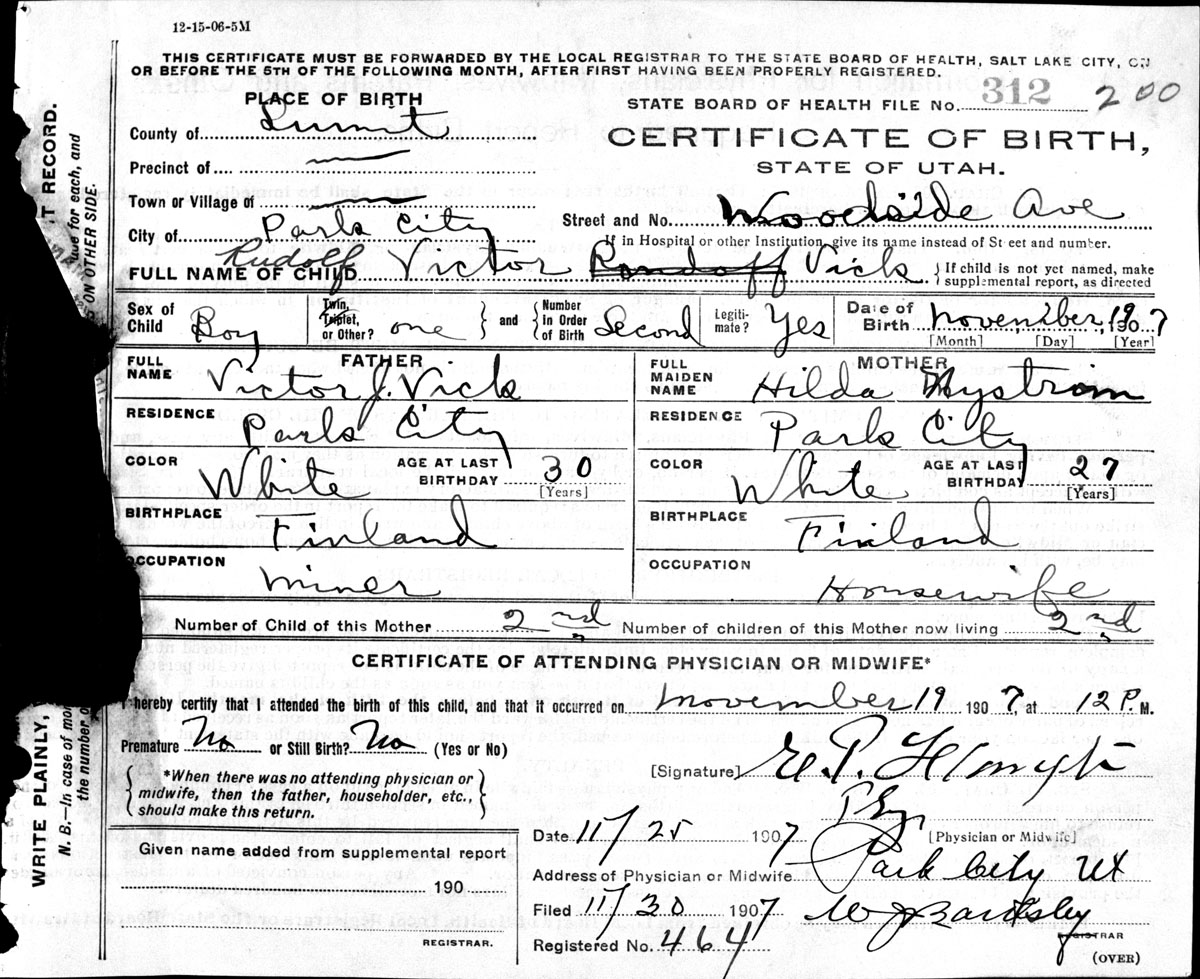 12-15-06-5M
THIS CERTIFICATE MUST BE FORWARDED BY THE LOCAL REGISTRAR TO THE STATE BOARD OF HEALTH, SALT LAKE CITY, ON
OR BEFORE THE 5TH OF THE FOLLOWING MONTH, AFTER FIRST HAVING BEEN PROPERLY REGISTERED.
PLACE OF BIRTH
STATE BOARD OF HEALTH FILE No. 312 200
County of Summit
CERTIFICATE OF BIRTH,
STATE OF UTAH.
Precinct of
Town or Village of
Street and No. Woodside Ave
City of Park City
If in Hospital or other Institution, give its name instead of Street and number.
FULL NAME OF CHILD Rudolf Victor Rondoff Vick
If child is not yet named, make
supplemental report, as directed
Sex of Child Boy
Twin, Triplet, or Other? one
and
Number In Order of Birth Second
Legitimate? Yes
Date of Birth November 19 1907
[Month] [Day] [Year]
FATHER
FULL NAME Victor J. Vick
MOTHER
FULL MAIDEN NAME Hilda Nystrom
RESIDENCE Park City
RESIDENCE Park City
COLOR White AGE AT LAST BIRTHDAY 30 [Years]
COLOR White AGE AT LAST BIRTHDAY 27 [Years]
BIRTHPLACE Finland
BIRTHPLACE Finland
OCCUPATION Miner
OCCUPATION Housewife
Number of Child of this Mother 2nd
Number of children of this Mother now living 2nd
CERTIFICATE OF ATTENDING PHYSICIAN OR MIDWIFE*
I hereby certify that I attended the birth of this child, and that it occurred on November 19 1907, at 12 P.M.
Premature No or Still Birth? No (Yes or No)
*When there was no attending physician or
midwife, then the father, householder, etc.,
should make this return.
[Signature] E. P.
Phy
[Physician or Midwife]
Date 11/25 1907
Address of Physician or Midwife Park City Ut
Filed 11/30 1907 W J Bardsley
REGISTRAR
Registered No. 464
(OVER)
Given name added from supplemental report
190
REGISTRAR.
WRITE PLAINLY,
T RECORD.
N. B.—In case of more
the number o
sue for each, and
S ON OTHER SIDE.